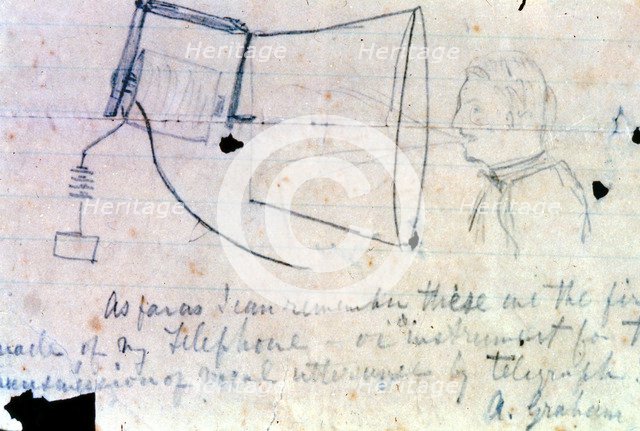 As far as I can remember these are the fir
made of my Telephone - or instrument for t
ansmission of vocal utterances by telegraph
A. Graham
Heritage
Heritage
Heritage
Heritage
Heritage
Heritage
Heritage
Heritage